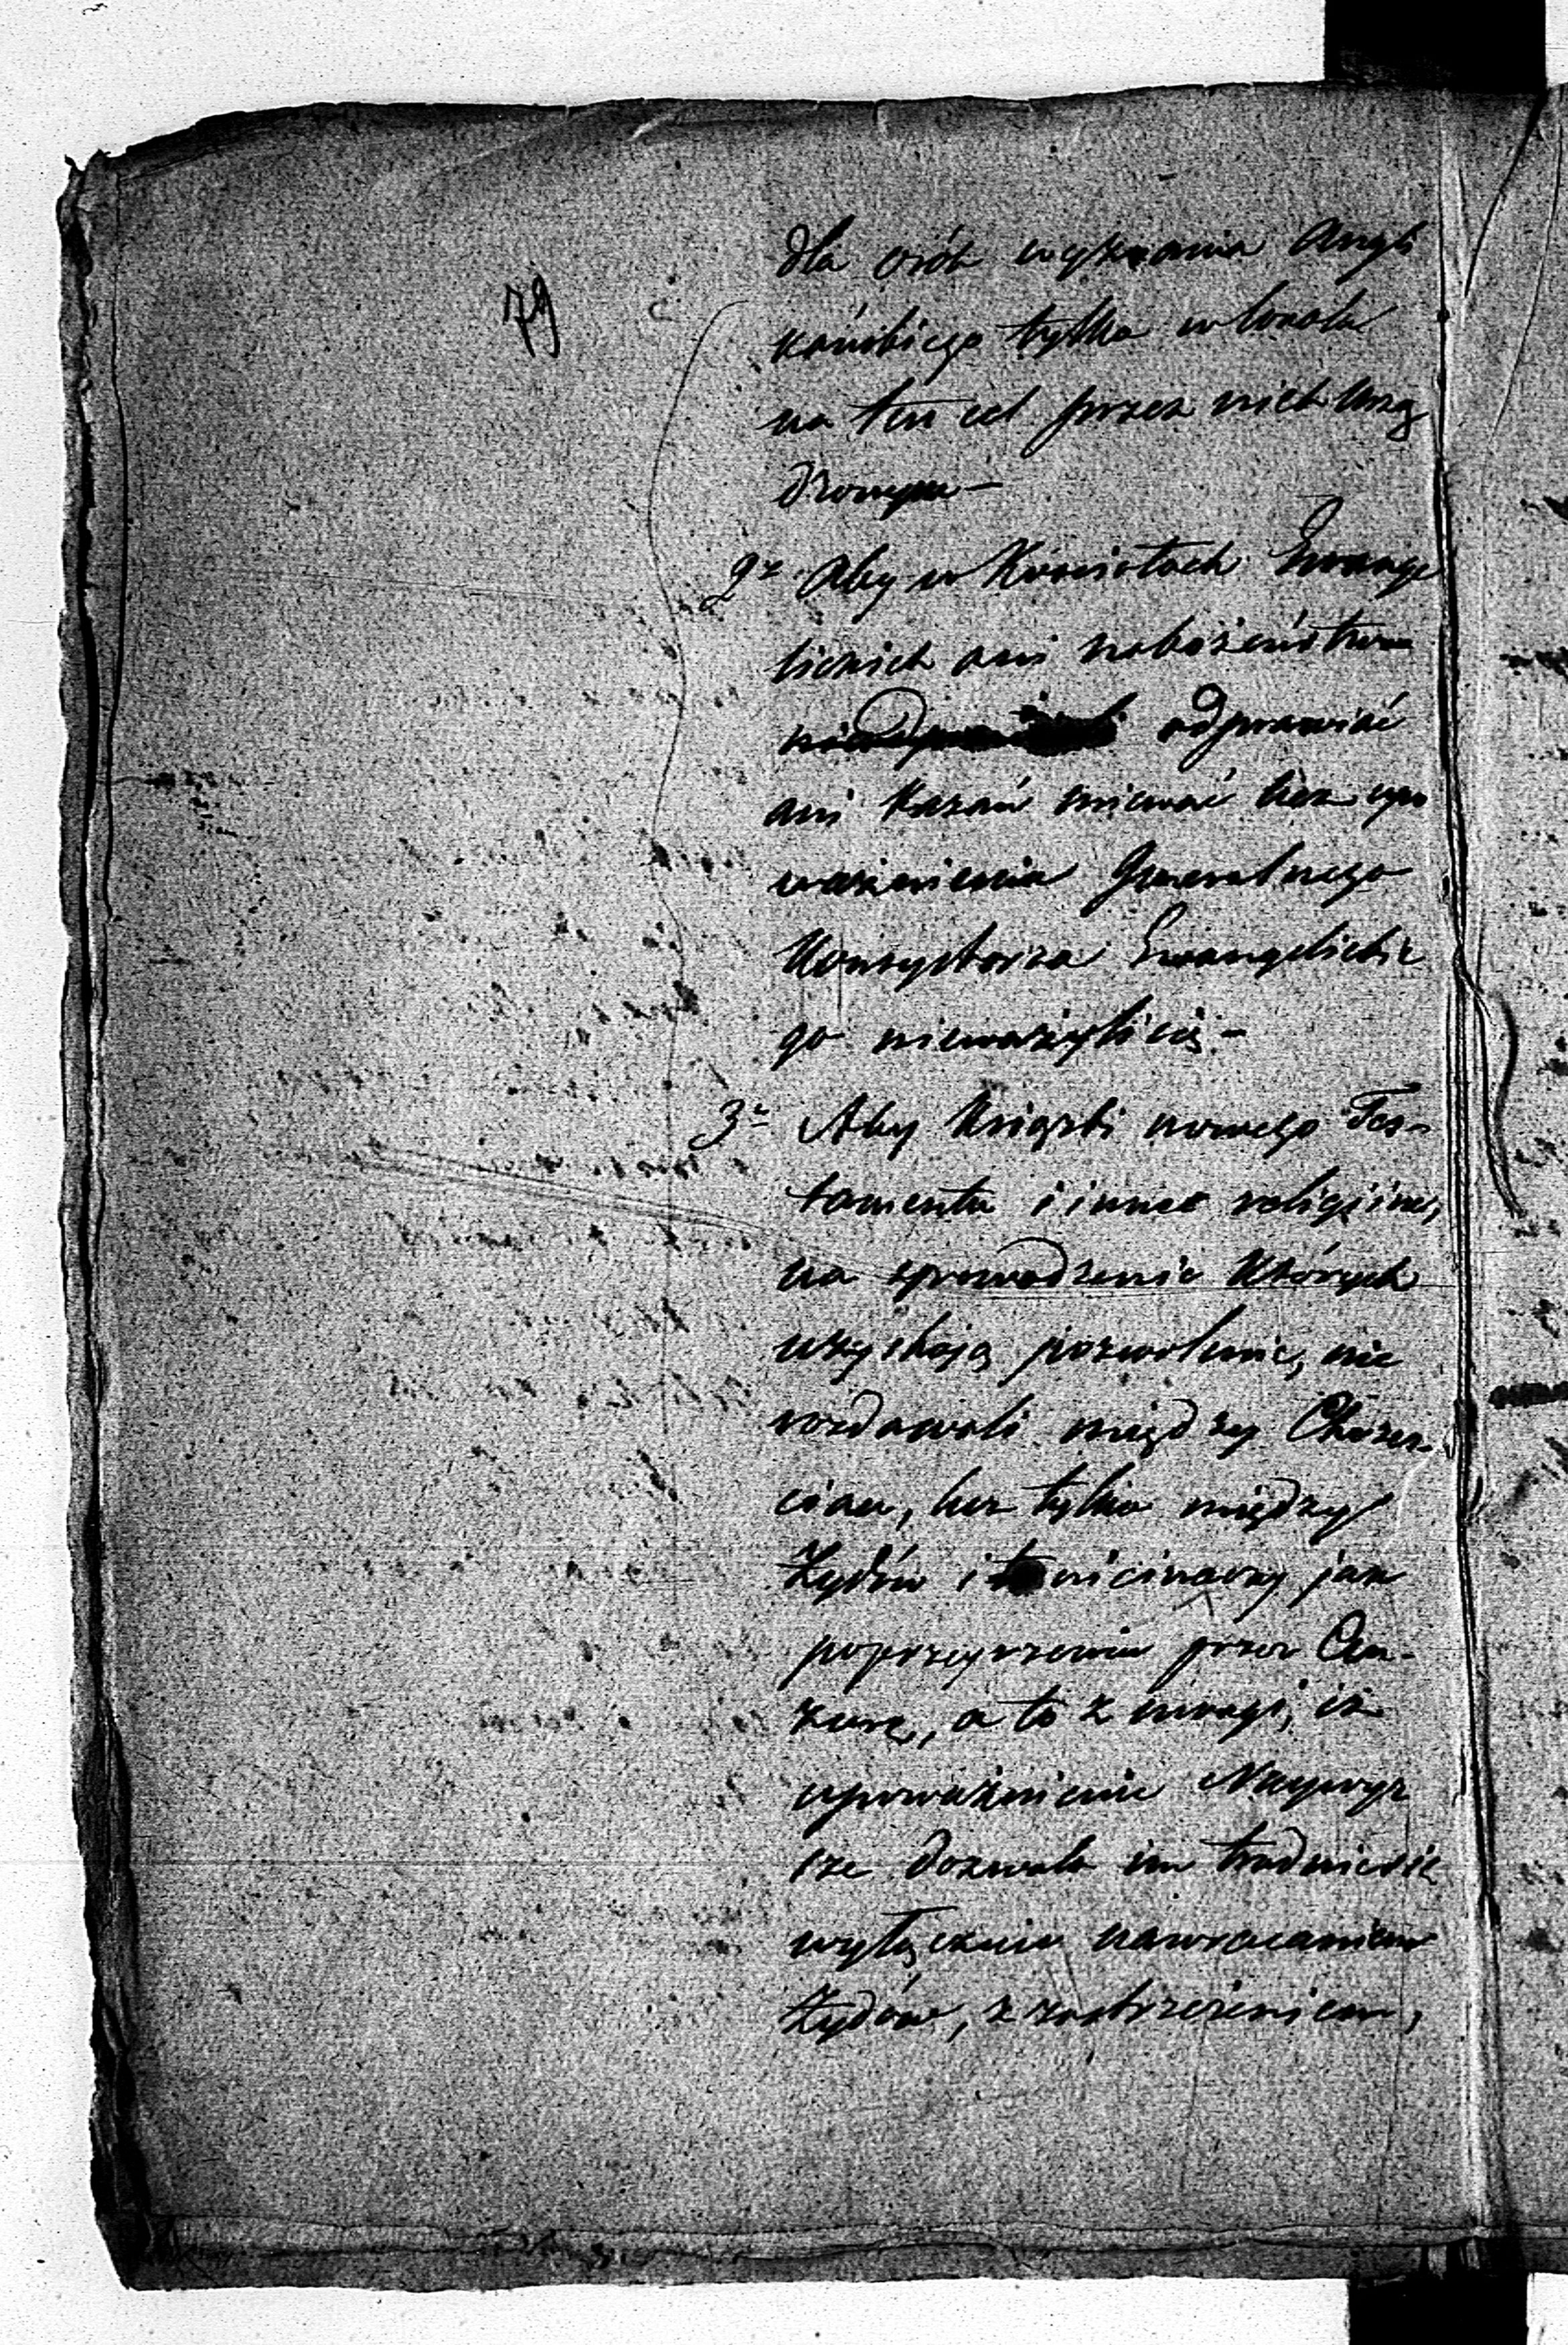 79
dla osób wyznania Angli
kańskiego tylko w lokalu
na ten cel przez nich urzą
dzonym —
2º Aby w Kościołach Ewange
lickich ani nabożeństwa
odprawiać
ani kazań miewać bez upo
ważnienia Generalnego
Konsystorza Ewangelickie
go nieważyli się —
3º Aby Książki nowego Tes-
tamentu i inne religijne,
na sprowadzenie których
uzyskają pozwolenie, nie
rozdawali między Chrześ-
cian, lecz tylko między
Żydów i to nieinaczy jak
poprzeyrzeniu przez Cen-
zurę, a to z uwagi, iż
upoważnienie Naywyż
sze dozwala im trudnić się
wyłącznie nawracaniem
Żydów, z zastrzeżeniem,